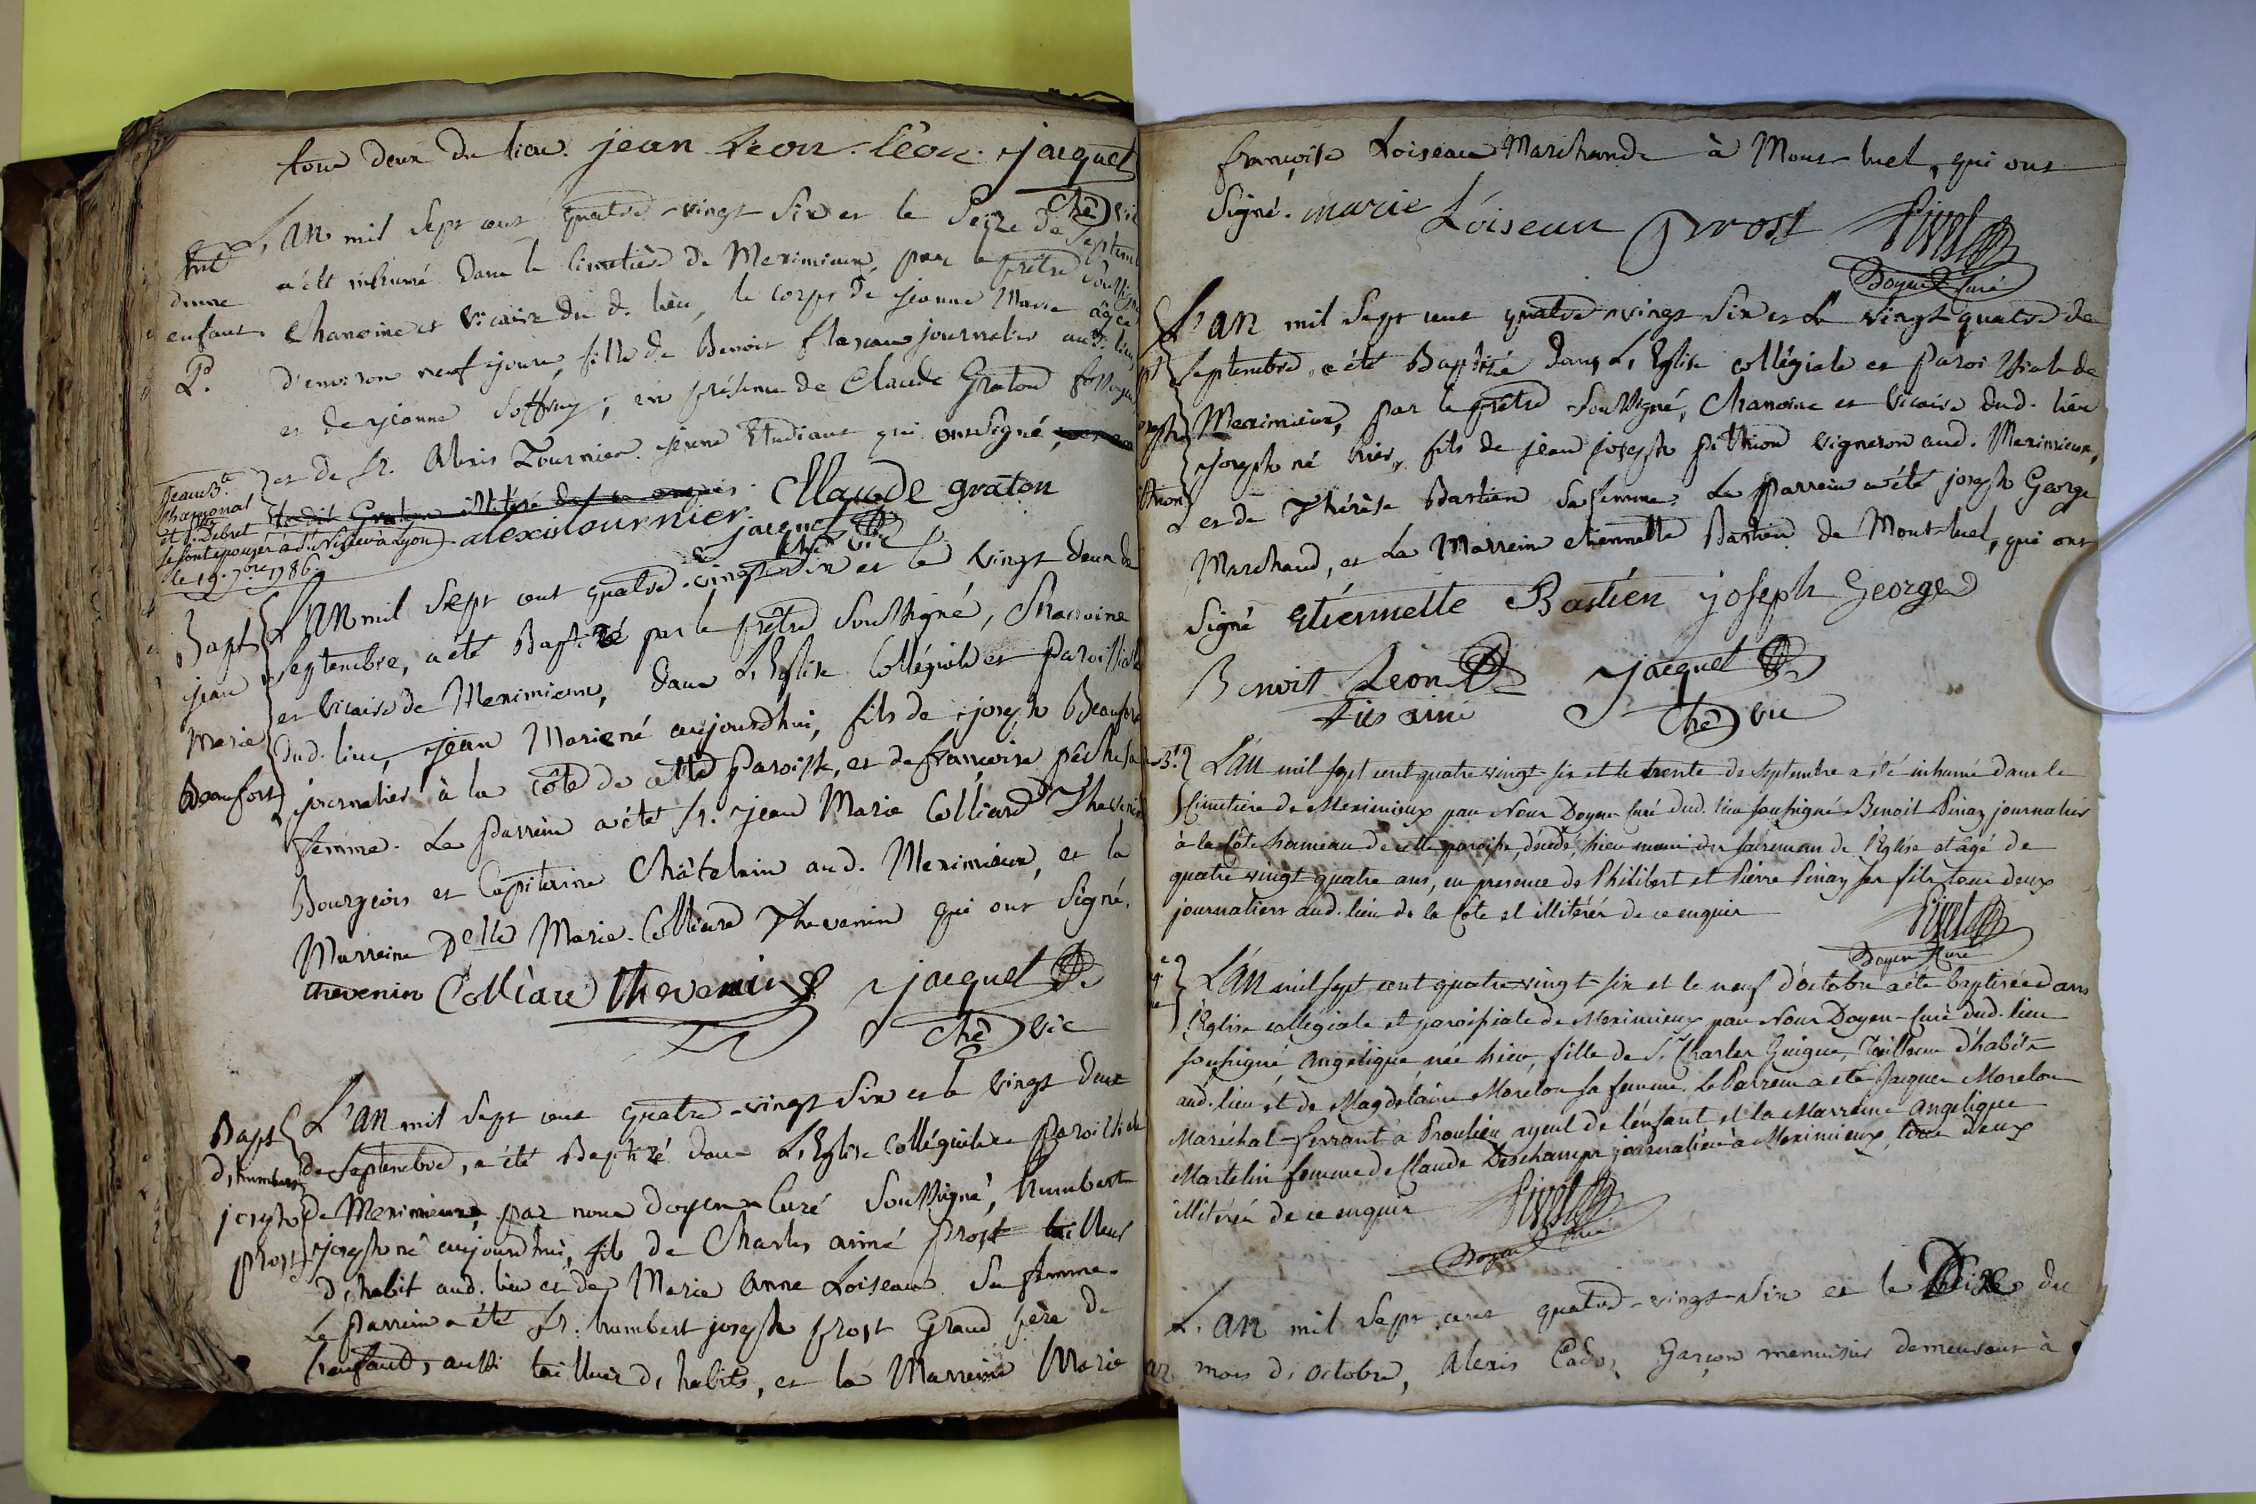 tous deux du lieu. jean Léon. Léon. jacquet
Che vic
L'an mil sept cent quatre-vingt Six et le Seize de Septemb
a été inhumé dans le Cimetière de Meximieux, par le prêtre Soussigné
Chanoine et vicaire du d. lieu, le corps de jeanne Marie agée
d'environ neuf jours, fille de Benoit journalier aud. lieu,
et de jeanne ; en présence de Claude Graton
et de Sr. Alexis Tournier jeune Etudiant qui ont Signé,
Claude graton
alexis tournier. jacquet
che vic
enfant
jean B.te
Charmonal
et Debret
se sont épousés à St. Nisier à Lyon
le 19. 7bre 1786.
Bapt
jean
Marie
Beaufort
L'an mil Sept cent quatre-vingt-Six et le vingt deux de
Septembre, a été Baptizé par le prêtre Soussigné, Chanoine
et vicaire de Meximieux, dans L'Eglise Collégiale et paroissiale
dud. lieu, jean Marie né aujourdhui, fils de joseph Beaufort
journalier à la côte de cette paroisse, et de francoise
femme. Le parrein a été Sr. jean Marie Colliard Thevenin
Bourgeois et Capitaine Châtelain aud. Meximieux, et la
Marreine Delle Marie. Colliard Thevenin qui ont Signé.
thevenin Colliard thevenin jacquet
che vic
Bapt
d'humbert
joseph
prost
L'an mil sept cent quatre-vingt Six et le vingt deux
de Septembre, a été Baptizé dans L'Eglise collégiale et paroissiale
de Meximieux, par nous doyen-Curé Soussigné, humbert
joseph né aujourdhui, fils de Charles aimé prost tailleur
d'habit aud. lieu et de Marie Anne Loiseau Sa femme.
Le parrein a été Sr. humbert joseph prost Grand père de
l'enfant, aussi tailleur d'habits, et la Marreine Marie
françoise Loiseau Marchande à Mont-luel, qui ont
Signé. marie Loiseau prost Livet
Doyen Curé
L'an mil Sept cent quatre-vingt Six et Le vingt quatre de
Septembre, a été Baptizé dans L'Eglise collégiale et paroissiale de
Meximieux, par le prêtre Soussigné, Chanoine et vicaire dud. lieu
joseph né hier, fils de jean joseph pithion vigneron aud. Meximieux,
et de Thérèse Bastien Sa femme. Le parrein a été joseph George
Marchand, et La Marreine etiennette Bastien de Mont-luel, qui ont
Signé etiennette Bastien joseph George
Benoit Leon jacquet
fils ainé che vic
L'an mil sept cent quatre vingt-six et le trente de Septembre a été inhumé dans le
Cimetière de Meximieux par Nous Doyen-Curé dud. lieu soussigné Benoit Pinay journalier
à la Côte hameau de cette paroisse, décédé, hier muni des sacremens de l'Eglise et agé de
quatre vingt quatre ans, en presence de Philibert et Pierre Pinay ses fils tous deux
journaliers aud. lieu de la Cote et illitérés de ce enquis
Livet
Doyen Curé
L'an mil sept cent quatre-vingt-six et le neuf d'octobre a été baptisée dans
l'Eglise collegiale et paroissiale de Meximieux par Nous Doyen-Curé dud. lieu
soussigné, angelique, née hier, fille de Sr. Charles Guigue, Tailleur d'habits
aud. lieu et de Magdelaine Morelon sa femme. Le Parrein a été Jacques Morelon
Maréchal-ferrant à Proulieu ayeul de l'enfant et la Marreine angelique
Martelin femme de Claude Deschamps journalier à Meximieux, tous deux
illitérés de ce enquis Livet
Doyen Curé
L'an mil Sept cent quatre-vingt-Six et le du
mois d'octobre, Alexis Garçon menuisier demeurant à